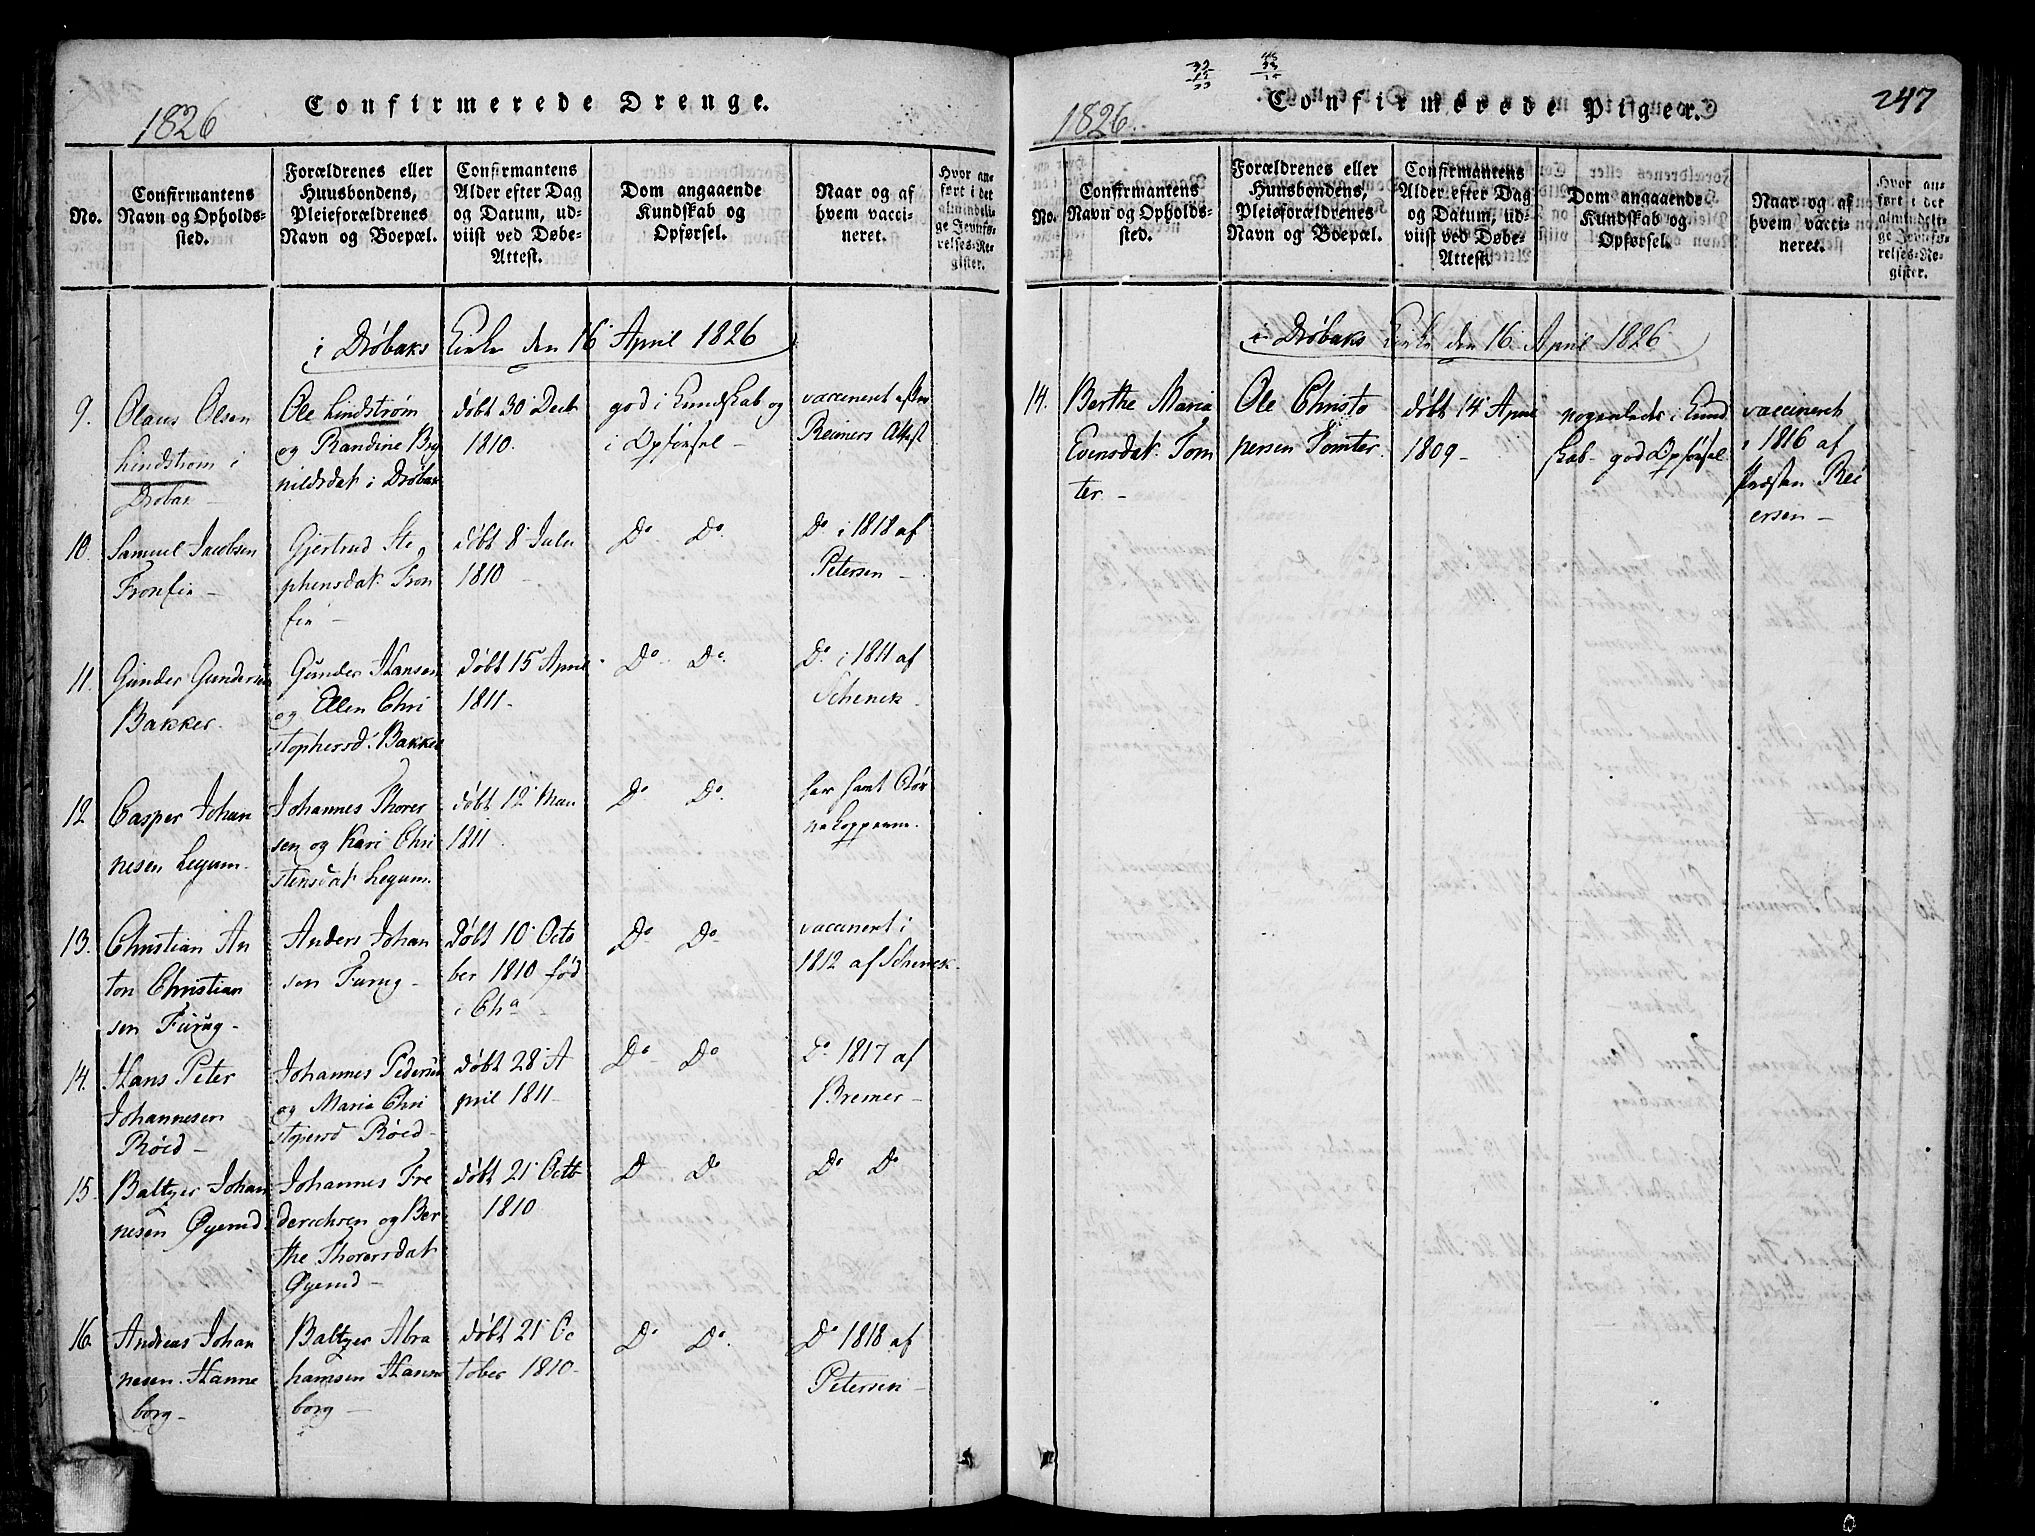 Confirmerede Drenge.
1826
No.
Confirmantens
Navn og Opholds-
sted.
Forældrenes eller
Huusbondens,
Pleieforældrenes
Navn og Boepæl.
Confirmantens
Alder efter Dag
og Datum, ud-
viist ved Døbe-
Attest.
Dom angaaende
Kundskab og
Opførsel.
Naar og af
hvem vacci-
neret.
Hvor an-
ført i det
almindeli-
ge Jevnfø-
relses-Re-
gister.
i Drøbaks Kirke den 16 April 1826
9.
Olaus Olsen
Lindstrøm i
Drøbak -
Ole Lindstrøm
og Randine Bry
nildsdat i Drøbak
døbt 30 Decb
1810.
god i Kundskab og
i Opførsel -
vaccineret efter
Reimers Attest
10.
Samuel Jacobsen
Fronfin -
Gjertrud Ste
phensdat: Fron
fin -
døbt 8 Julii
1810 -
Do Do
Do i 1818 af
Petersen -
11.
Gunder Gundersen
Bakker.
Gunder Hansen
og Ellen Chri
stophersd. Bakker
døbt 15 April
1811.
Do Do
Do i 1811 af
Schenck.
12
Casper Johan
nesen Legum.
Johannes Thorer
sen og Kari Chri
stensdat Legum.
døbt 12 Mai
1811.
Do Do
har havt Bør
nekopperne.
13.
Christian An
ton Christian
sen Furug -
Anders Johan
sen Furug -
døbt 10 Octo
ber 1810 fød
i Cha
Do Do
vaccineret i
1812 af Schenck.
14.
Hans Peter
Johannesen
Røed -
Johannes Pedersen
og Maria Chri
stopersd Røed -
døbt 28 A
pril 1811 -
Do Do
Do 1817 af
Bremer -
15.
Baltzer Johan
nesen Øyerud
Johannes Fre
derichsen og Ber
the Thorersdat
Øyerud -
døbt 21 Octb
1810
D Do
Do Do
16.
Andreas Johan
nesen Hanne
borg -
Baltzer Abra
hamsen Hanne
borg -
døbt 21 Oc
tober 1810 -
Do Do
Do 1818 af
Petersen -
Confirmerede Piger.
247
1826.
No.
Confirmantens
Navn og Opholds-
sted.
Forældrenes eller
Huusbondens,
Pleieforældrenes
Navn og Boepæl.
Confirmantens
Alder efter Dag
og Datum, ud-
viist ved Døbe-
Attest.
Dom angaaende
Kundskab og
Opførsel.
Naar og af
hvem vacci-
neret.
Hvor an-
ført i det
almindeli-
ge Jevnfø-
relses-Re-
gister.
i Drøbaks Kirke den 16 April 1826
14.
Berthe Maria
Evensdat: Tom
ter -
Ole Christo
persen Tomter.
døbt 14 April
1809 -
nogenledes i Kund
skab - god Opførsel
vaccineret
i 1816 af
Præsten Rei
ersen -